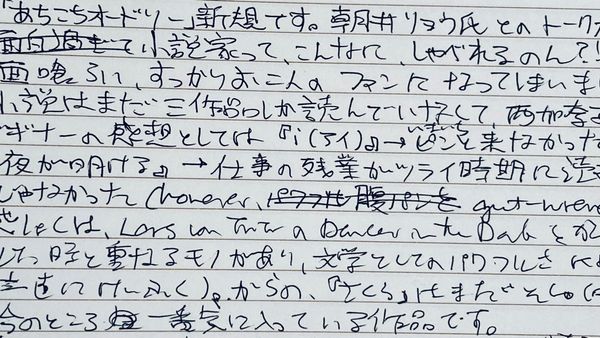 「あちこちオードリー」新規です。朝井リョウ氏とのトーク
面白過ぎて小説家って、こんなに、しゃべれるのん?!
面喰らい、すっかりお二人のファンになってしまいま
小説はまだ三作品しか読んでいなくて、西加奈子
ビギナーの感想としては『i(アイ)』→いまいちピンと来なかった
夜が明ける』→仕事の残業がツライ時期に読
じゃなかった(however, gut-wren
Lars von Trier の Dancer in the Dark とか
日と重ねるモノがあり、文学としてのパワフルさ
からの、『さくら』はまだ
今のところ一番気に入っている作品です。